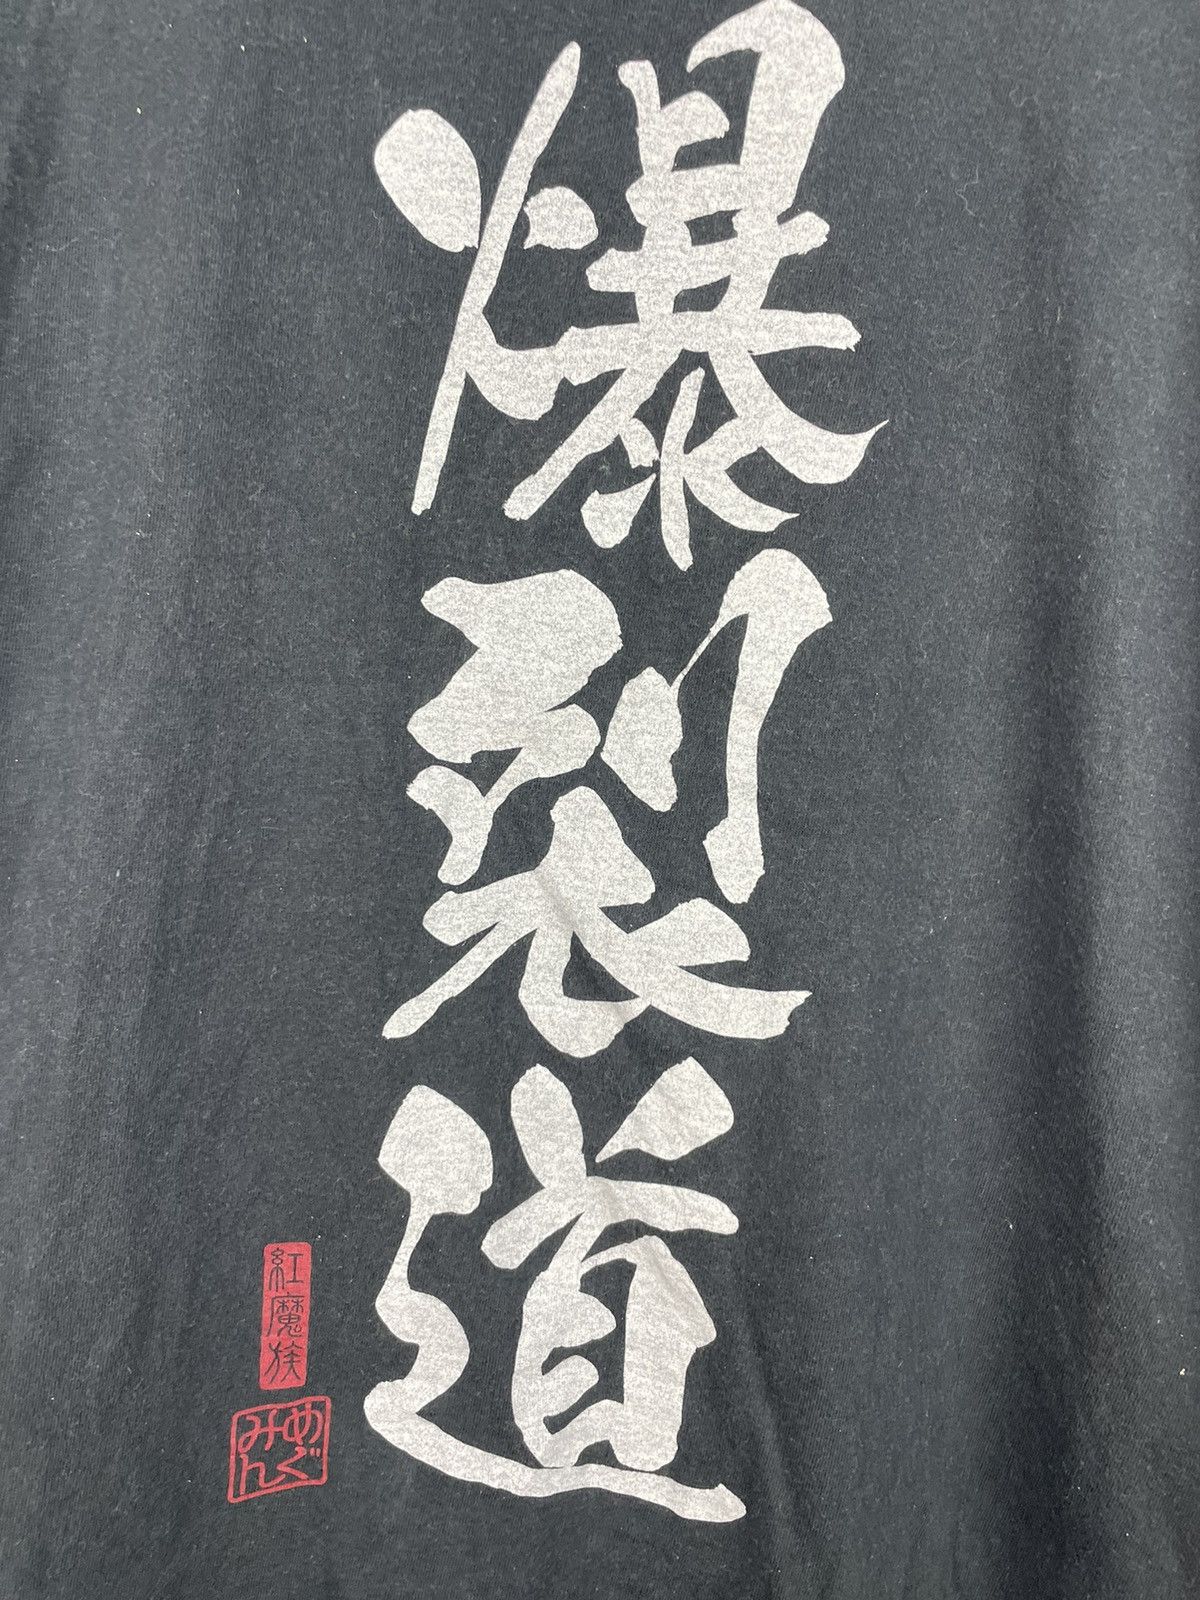 爆裂道
紅魔族
めぐ
みん